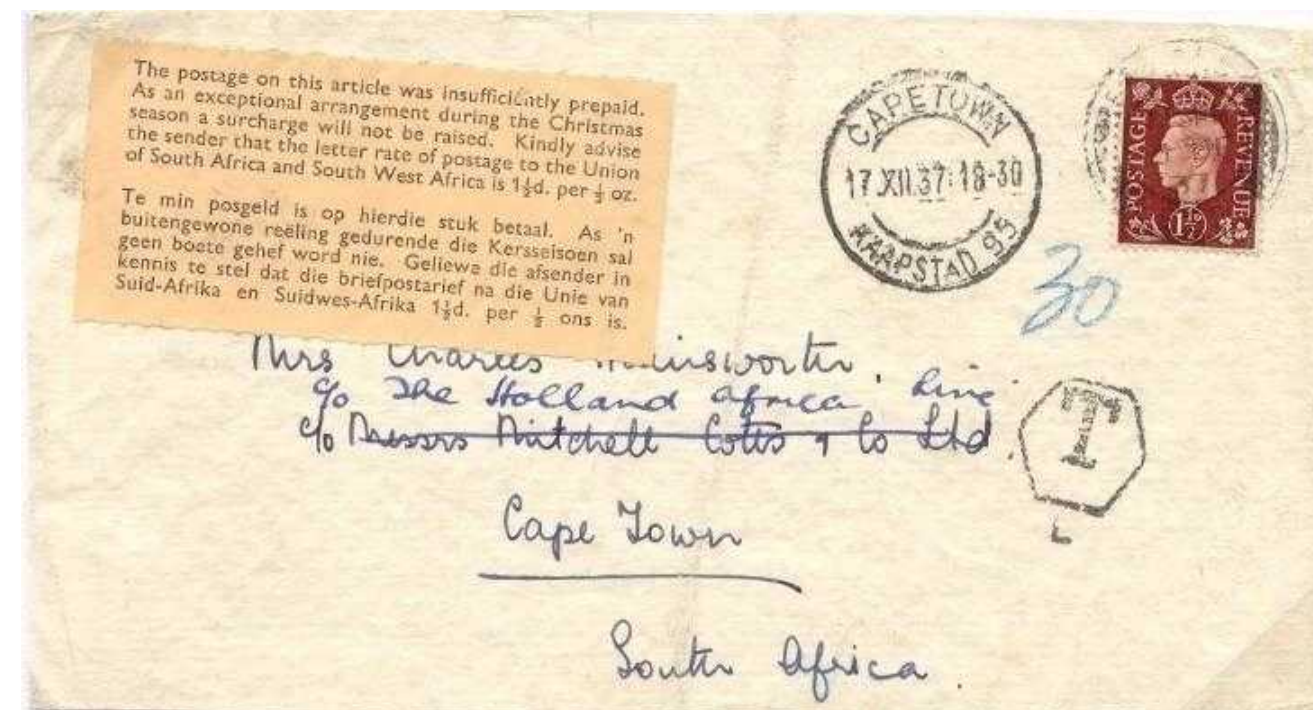 The postage on this article was insufficiently prepaid.
As an exceptional arrangement during the Christmas
season a surcharge will not be raised. Kindly advise
the sender that the letter rate of postage to the Union
of South Africa and South West Africa is 1½d. per ½ oz.
Te min posgeld is op hierdie stuk betaal. As 'n
buitengewone reëling gedurende die Kersseisoen sal
geen boete gehef word nie. Geliewe die afsender in
kennis te stel dat die briefpostarief na die Unie van
Suid-Afrika en Suidwes-Afrika 1½d. per ½ ons is.
CAPETOWN
17 XII 37 18-30
KAAPSTAD 95
POSTAGE REVENUE
1½D
30
Mrs Charles
c/o The Holland Africa Line
c/o Messrs Mitchell Cotts & Co Ltd.
T
Cape Town
South Africa.